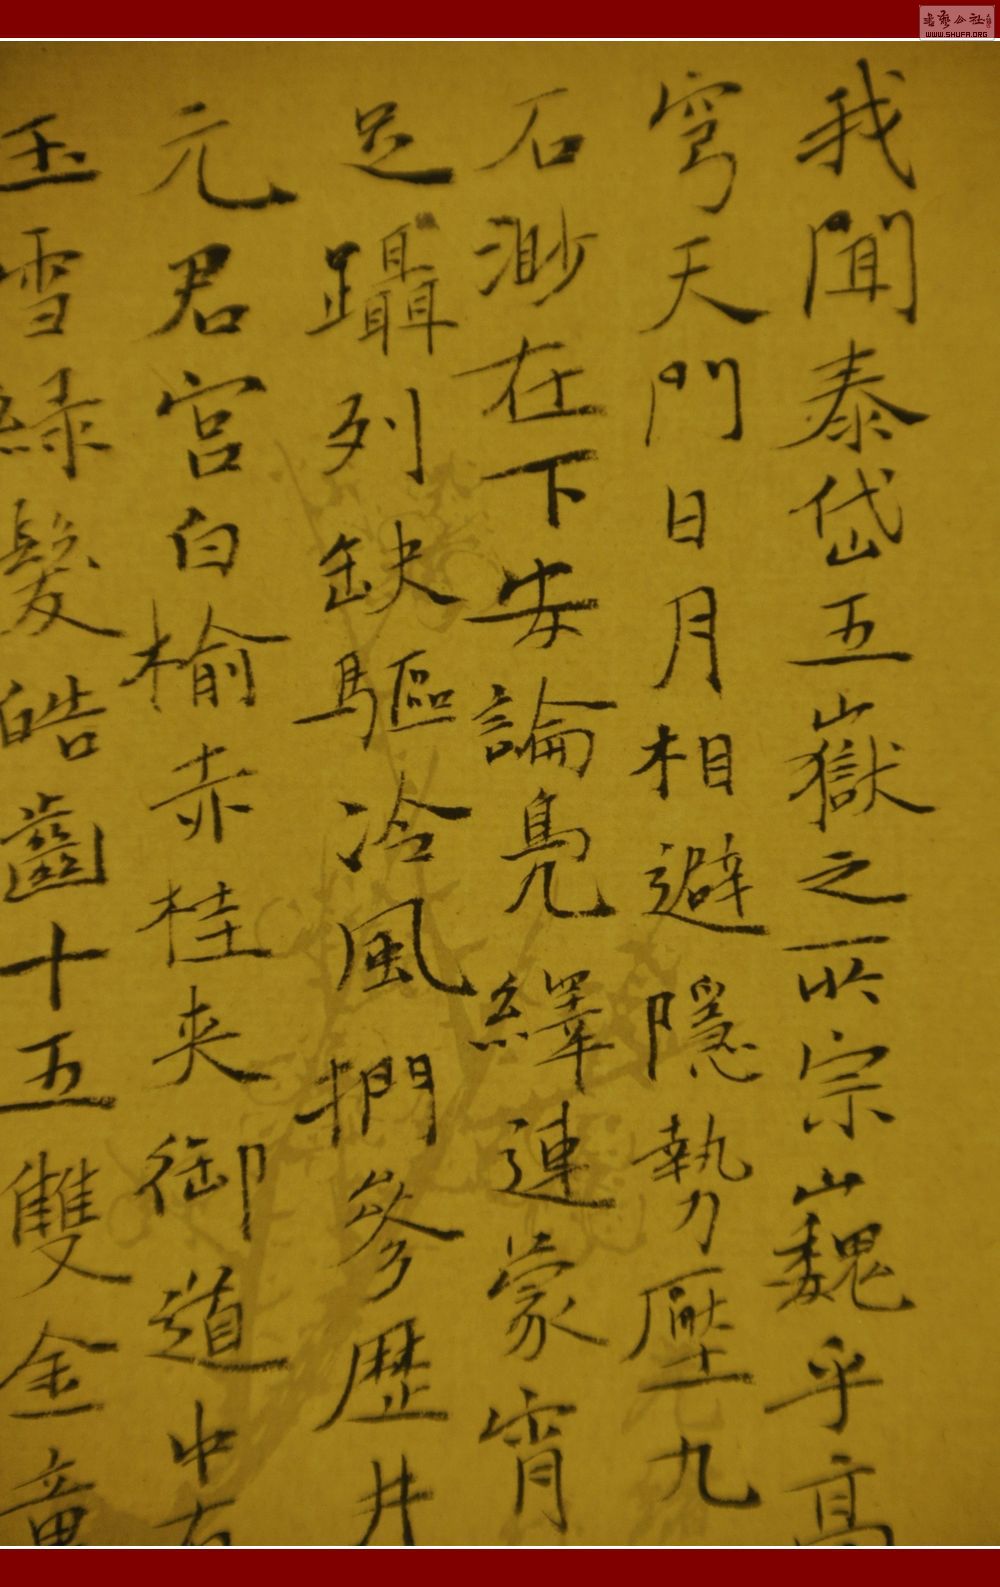 我聞泰岱五嶽之所宗巍乎高
穹天門日月相避隱勢壓九
石渺在下安論鳧繹連蒙宵
足躡列缺驅冷風捫參歷井
元君宮白榆赤桂夾御道中右
玉雪綠髮皓齒十五雙金童
書藝公社
WWW.SHUFA.ORG